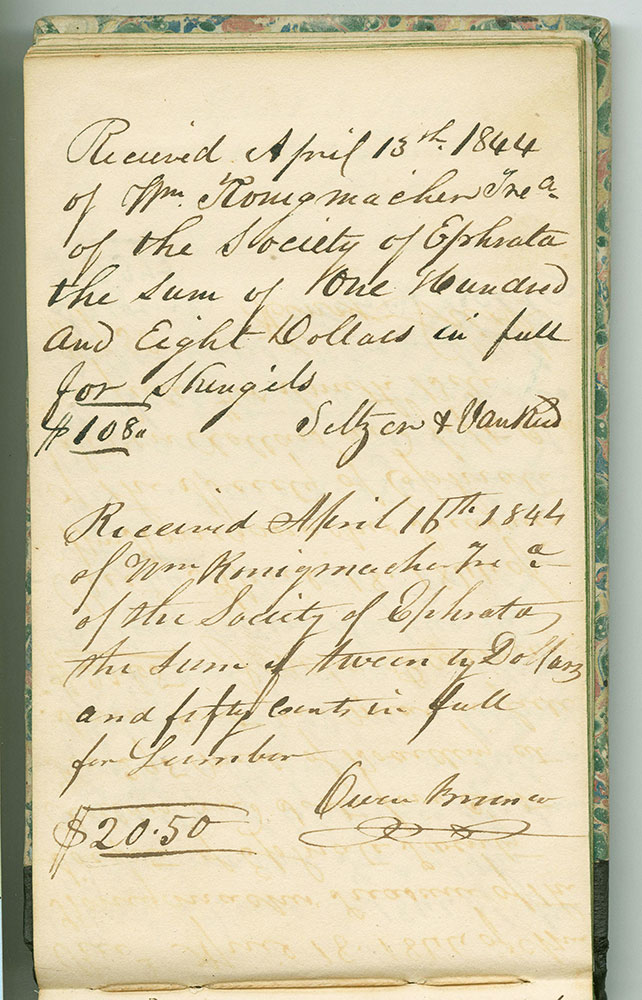 Received April 13th. 1844
of Wm. Konigmacher Trea.
of the Society of Ephrata
the sum of One Hundred
and Eight Dollars in full
for Shingils
$108
Seltzer & VanRied
Received April 16th 1844
of Wm Konigmacher Trea
of the Society of Ephrata
the sum of tweenty Dollars
and fifty Cents in full
for Lumber
Owen Bruner
$20.50